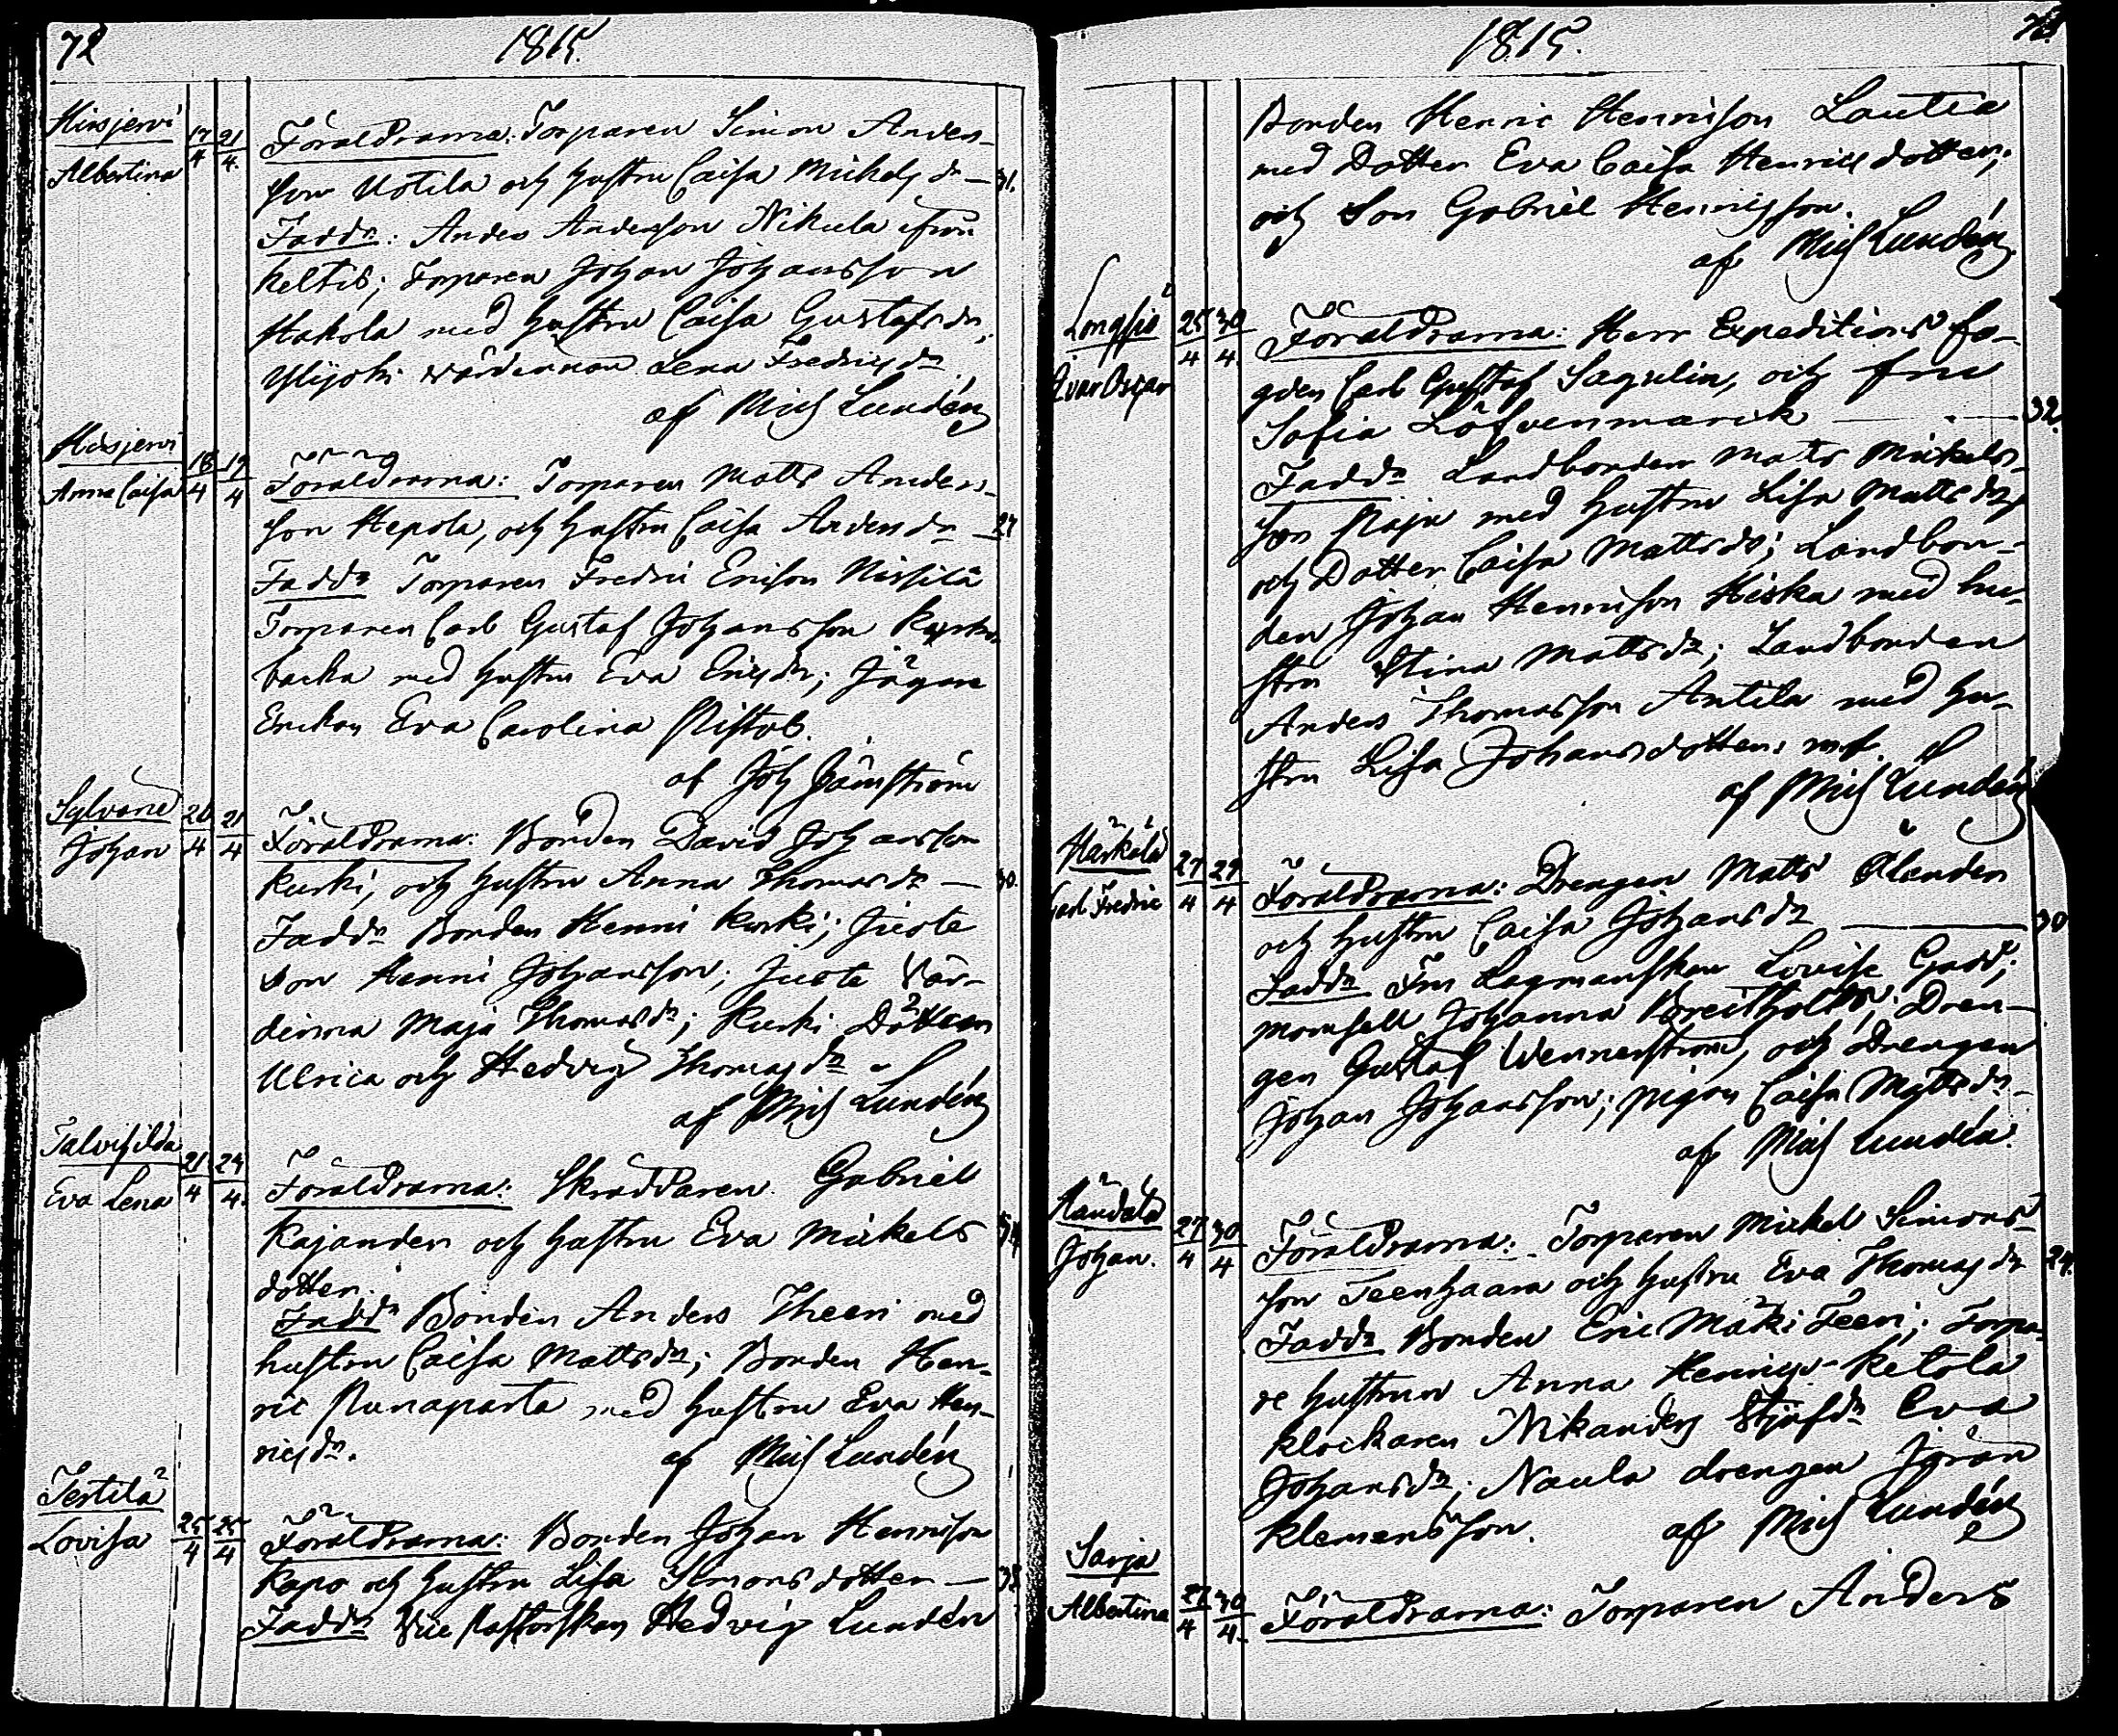 72
1815.
Hirsjervi
Albertina
17/4
21/4.
Föräldrarna: Torparen Simon Anders-
son Uotila och hustru Caisa Michelsdr — 31.
Faddr: Anders Andersson Nikula ifrån
Keltis; Torparen Johan Johansson
Hakola med hustru Caisa Gustafsdr,
Ylijoki värdinnan Lena Fredricsdr
af Mich Lundén
Hirsjervi
Anna Caisa
18/4
19/4
Föräldrarna: Torparen Matts Anders-
son Hepola, och hustru Caisa Andersdr — 27
Faddr Torparen Fredric Ericson Nissilä
Torparen Carl Gustaf Johansson
backa med hustru Eva Ericsdr; Jägare
Enckan Eva Carolina Pistol.
af Joh
Sylvänä
Johan
20/4
21/4
Föräldrarna: Bonden David Johansson
Kurki, och hustru Anna Thomasdr — 30.
Faddr Bonden Henric Kurki; Juote
Son Henric Johansson; Juote Vär-
dinna Maja Thomasdr; Kurki Döttren
Ulrica och Hedvig Thomasdr
af Mich Lundén
Talvisilda
Eva Lena
21/4
24/4.
Föräldrarna: Skräddaren Gabriel
Kajander och hustru Eva Mickels
dotter.
Faddr Bonden Anders Theeri med
hustru Caisa Mattsdr; Bonden Hen-
ric Punaparta med hustru Eva Hen-
ricsdr.
af Mich Lundén
Jertilä
Lovisa
25/4
25/4
Föräldrarna: Bonden Johan Henricson
Kapo och hustru Lisa Simonsdotter — 38
Faddr Vice Pastorskan Hedvig Lundén
1815.
73.
Bonden Henric Henricson Lautia
med Dotter Eva Caisa Henricsdotter;
och Son Gabriel Henricsson.
af Mich Lundén
Longsjö
Ivar Oscar
25/4
30/4.
Föräldrarna: Herr Expeditions fo-
gden Carl Gustaf Sagulin, och fru
Sofia Löfvenmarck — 32.
Faddr Landbonden Mats Mickels-
son Raja med hustru Lisa Mattsdr
och Dotter Caisa Mattsdr; Landbon-
den Johan Henricson Hiska med hu-
stru Stina Mattsdr; Landbonden
Anders Thomasson Antila med hu-
stru Lisa Johansdotter. m.f.
af Mich Lundén
Härkälä
Carl Fredric
27/4
29/4
Föräldrarna: Drengen Matts Ölander
och hustru Caisa Johansdr — 30
Faddr Fru Lagmanskan Lovisa Gadd;
mamsell Johanna Breitholtz; Dren-
gen Gustaf Wennerström, och Drengen
Johan Johansson; pigan Caisa Mattsdr
af Mich Lundén.
Händälä
Johan.
27/4
30/4
Föräldrarna: Torparen Mickel Simons-
son Teenhaara och hustru Eva Thomasdr 24.
Faddr Bonden Eric Mäki Teeri; Torpa-
re hustrun Anna Henricsdr Ketola
klockaren Nikanders Stjufdr Eva
Johansdr; Naula drengen Jöran
Klemensson.
af Mich Lundén
Sarja
Albertina
27/4
30/4.
Föräldrarna: Torparen Anders